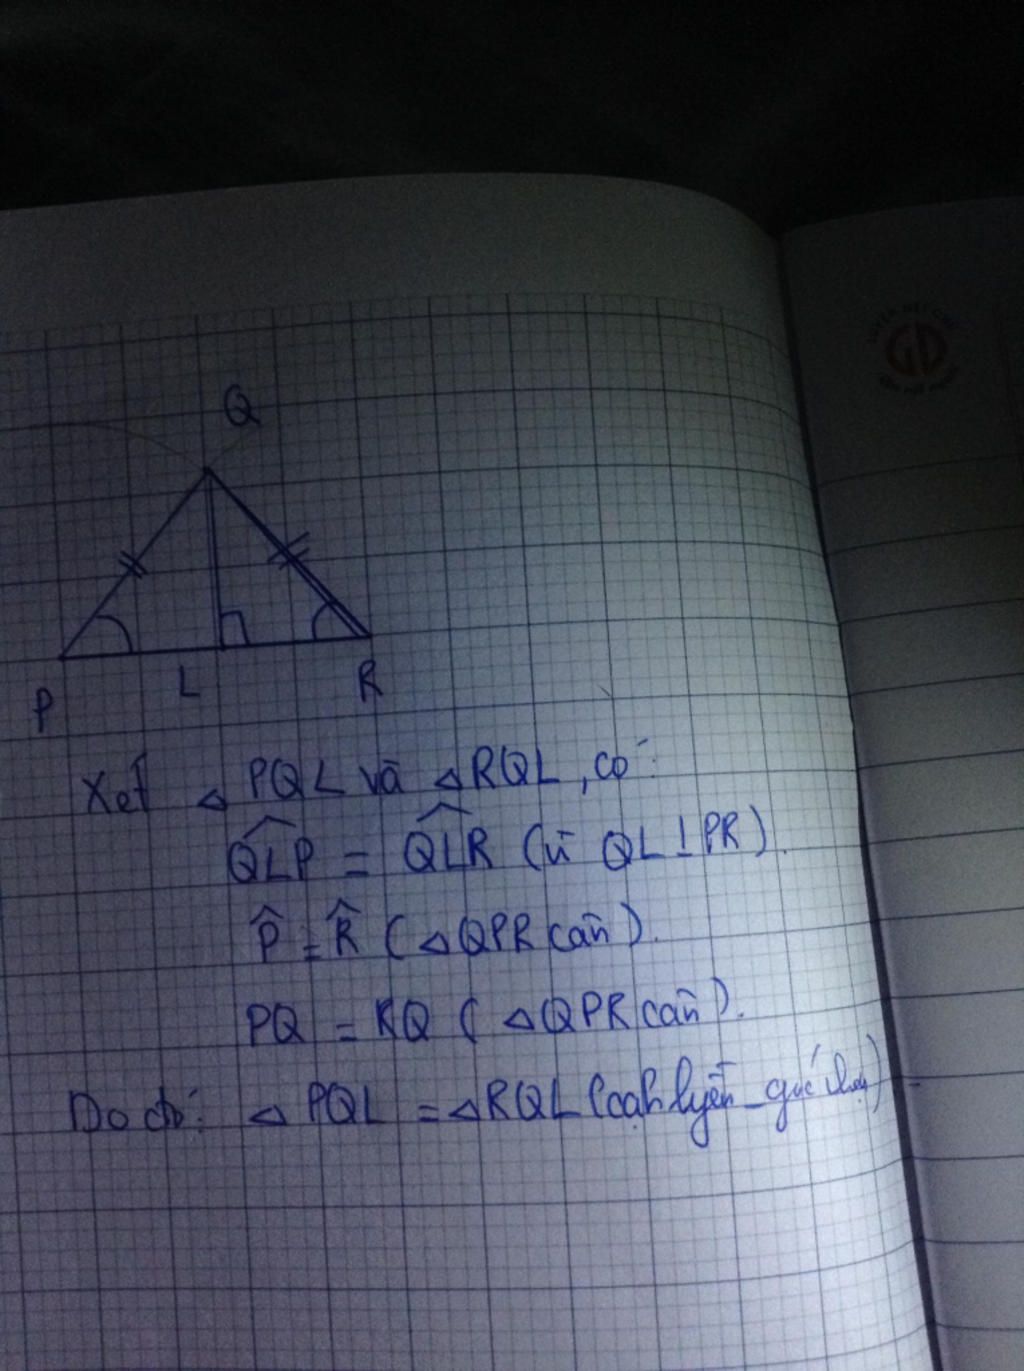 Q
P L R
Xét △ PQL và △RQL, có:
QLP = QLR (vì QL⊥PR).
P̂ = R̂ (△QPR cân).
PQ = RQ (△QPR cân).
Do đó: △ PQL = △RQL (cạnh huyền - góc nhọn)
GD